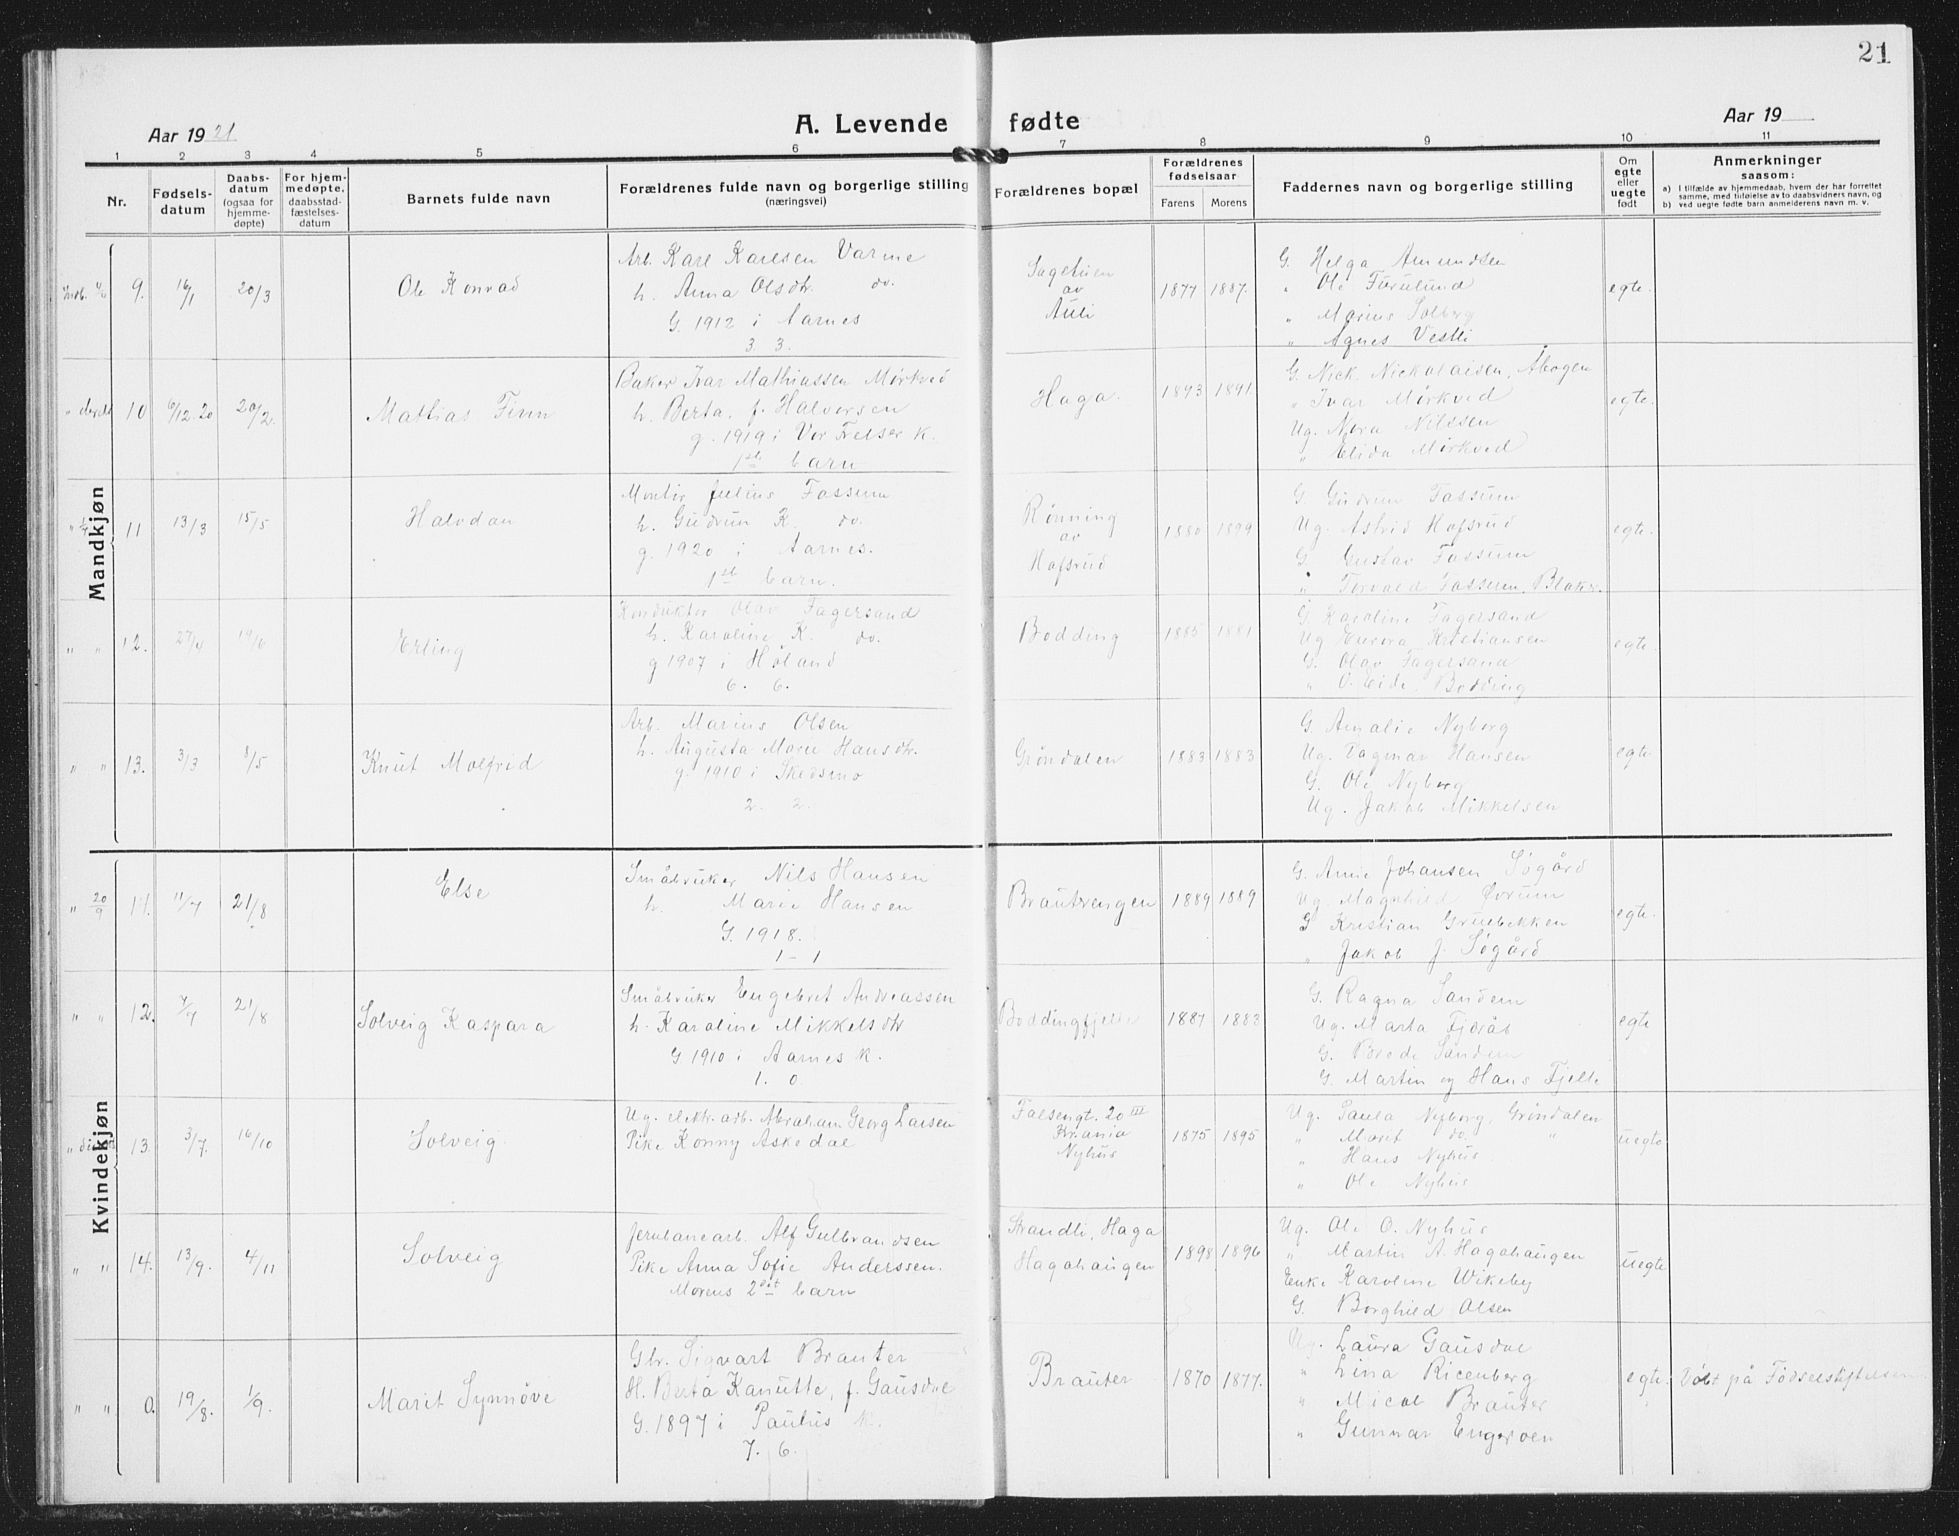 21
Aar 1921.
A. Levende fødte
Aar 19
1 2 3 4 5 6 7 8 9 10 11
Nr.
Fødsels-
datum
Daabs-
datum
(ogsaa for
hjemme-
døpte)
For hjem-
medøpte,
daabsstad-
fæstelses-
datum
Barnets fulde navn
Forældrenes fulde navn og borgerlige stilling
(næringsvei)
Forældrenes bopæl
Forældrenes
fødselsaar
Farens Morens
Faddernes navn og borgerlige stilling
Om
egte
eller
uegte
født
Anmerkninger
saasom:
a) I tilfælde av hjemmedaab, hvem der har forrettet
samme, med tilføielse av to daabsvidners navn, og
b) ved uegte fødte barn anmelderens navn m. v.
Mandkjøn
9. 16/1 20/3 Ole Konrad
Arb. Karl Karlsen Varme
h. Anna Olsdtr. do.
G. 1912 i Aarnes
3. 3.
Sagstuen
av
Auli
1877 1887.
G. Helga Amundsen
" Ole Furulund
" Marius Solberg
" Agnes Vestli
egte.
10 6/12 20 20/2. Mattias Finn
Baker Ivar Mathiassen Mørkved
h. Berta, f. Halvorsen
g. 1919 i Vor Frelser k.
1ste barn
Haga.
1893 1891
G. Nick. Nickolaisen, Åbogen
" Ivar Mørkved
Ug. Nora Nilssen
" Elida Mørkved
egte.
11 13/3 15/5 Halvdan
Montør Julius Fassum
h. Gudrun K. do.
g. 1920 i Aarnes.
1ste barn.
Rønning
av
Hofsrud
1880 1899
G Gudrun Fassum
Ug. Astrid Hofsrud
G Gustav Fassum
" Torvald Fassum, Blaker
egte.
12. 27/4 19/6 Erling
Konduktør Olav Fagersand
h. Karoline K. do.
g 1907 i Høland
6. 6.
Bodding
1885 1881
G Karoline Fagersand
Ug Aurora Kristiansen
G. Olav Fagersand
" O. Eide, Bodding
egte.
13. 3/3 8/5 Knut Molfrid
Arb. Marius Olsen
h. Augusta Marie Hansdtr.
g. 1910 i Skedsmo
2. 2.
Grøndalen
1883 1883
G. Amalie Nyborg
Ug. Dagmar Hansen
G. Ole Nyborg
Ug. Jakob Mikkelsen
egte
Kvindekjøn
" 20/9 11. 11/7 21/8 Else
Småbruker Nils Hansen
h. Marie Hansen
G. 1918.
1 - 1
Brautvengen
1889 1889
G. Anne Johansen Søgård
Ug. Magnhild Ørum
G Kristian Gruebekken
" Jakob J. Søgård
egte.
" " 12. 7/7 21/8 Solveig Kaspara
Småbruker Engebret Andreassen
h. Karoline Mikkelsdtr
G 1910 i Aarnes k.
1. 0.
Boddingfjellet
1887 1883
G. Ragna Sandem
Ug. Marta Fjeråt
G. Brede Sandem
G. Martin og Hans Fjelle
egte
13. 3/7. 16/10 Solveig
Ug. elektr.arb. Abraham Georg Larsen
Pike Konny Askedal
Falsengt. 20 III
Kr.ania
Nyhus
1875 1895
Ug. Paula Nyborg, Grøndalen
" Marit do. "
" Hans Nyhus
" Ole Nyhus
uegte
" " 14. 13/9. 4/11 Solveig
Jernbanearb. Alf Gulbrandsen
Pike Anna Sofie Anderssen.
Morens 2det barn
Strandli, Haga
Hagahaugen
1898 1896
Ug. Ole O. Nyhus
" Martin A. Hagahaugen
Enke Karoline Wikeby
G. Borghild Olsen
uegte
" " 0. 19/8. 1/9. Marit Synnøve
Gbr. Sigvart Brauter
H. Berta Kanutte, f. Gausdal
G. 1897 i Paulus k.
7. 6.
Brauter
1870 1877.
Ug. Laura Gausdal
" Lina Ricenberg
" Mical Brauter
" Gunnar Engeroen
egte. Døbt på Fødselsstiftelsen